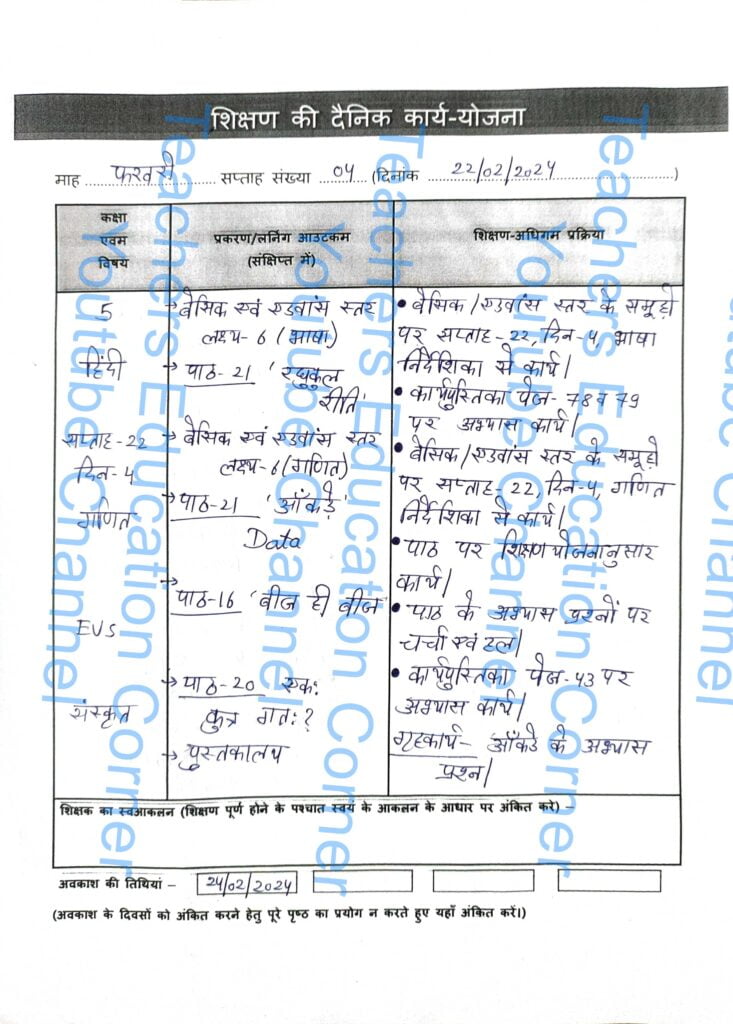 शिक्षण की दैनिक कार्य-योजना
माह फरवरी सप्ताह संख्या 04 (दिनांक 22/02/2024)
कक्षा
एवम
विषय
प्रकरण/लर्निंग आउटकम
(संक्षिप्त में)
शिक्षण-अधिगम प्रक्रिया
5
हिंदी
सप्ताह-22
दिन-4
गणित
EVS
संस्कृत
→ बेसिक एवं एडवांस स्तर
लक्ष्य-6 (भाषा)
→ पाठ-21 'रघुकुल
रीति'
→ बेसिक एवं एडवांस स्तर
लक्ष्य-6 (गणित)
→ पाठ-21 'आँकड़े'
Data
→ पाठ-16 'बीज ही बीज'
→ पाठ-20 एक:
कुत्र गत:?
→ पुस्तकालय
• बेसिक/एडवांस स्तर के समूहों
पर सप्ताह-22, दिन-4, भाषा
निर्देशिका से कार्य।
• कार्यपुस्तिका पेज-78 व 79
पर अभ्यास कार्य।
• बेसिक/एडवांस स्तर के समूहों
पर सप्ताह-22, दिन-4, गणित
निर्देशिका से कार्य।
• पाठ पर शिक्षण योजनानुसार
कार्य।
• पाठ के अभ्यास प्रश्नों पर
चर्चा एवं हल।
• कार्यपुस्तिका पेज-43 पर
अभ्यास कार्य।
गृहकार्य- आँकडे के अभ्यास
प्रश्न।
शिक्षक का स्वआकलन (शिक्षण पूर्ण होने के पश्चात स्वयं के आकलन के आधार पर अंकित करे) –
अवकाश की तिथियां – 24/02/2024
(अवकाश के दिवसों को अंकित करने हेतु पूरे पृष्ठ का प्रयोग न करते हुए यहाँ अंकित करें।)
Teachers Education Corner
Youtube Channel
Teachers Education Corner
Youtube Channel
Teachers Education Corner
Youtube Channel